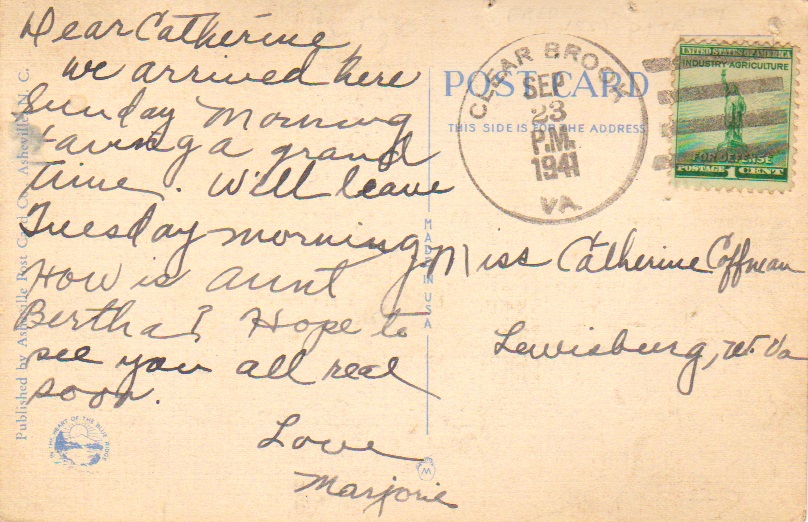 Dear Catherine,
We arrived here
Sunday Morning
Having a grand
time. Will leave
Tuesday morning
How is aunt
Bertha? Hope to
see you all real
soon.
Love
Marjorie
Published by Asheville Post Card Co., Asheville, N. C.
IN THE HEART OF THE BLUE RIDGE
MADE IN USA
POST CARD
THIS SIDE IS FOR THE ADDRESS
CLEAR BROOK
SEP
23
P.M.
1941
VA.
UNITED STATES OF AMERICA
INDUSTRY AGRICULTURE
FOR DEFENSE
POSTAGE 1 CENT
Miss Catherine Coffman
Lewisburg, W. Va